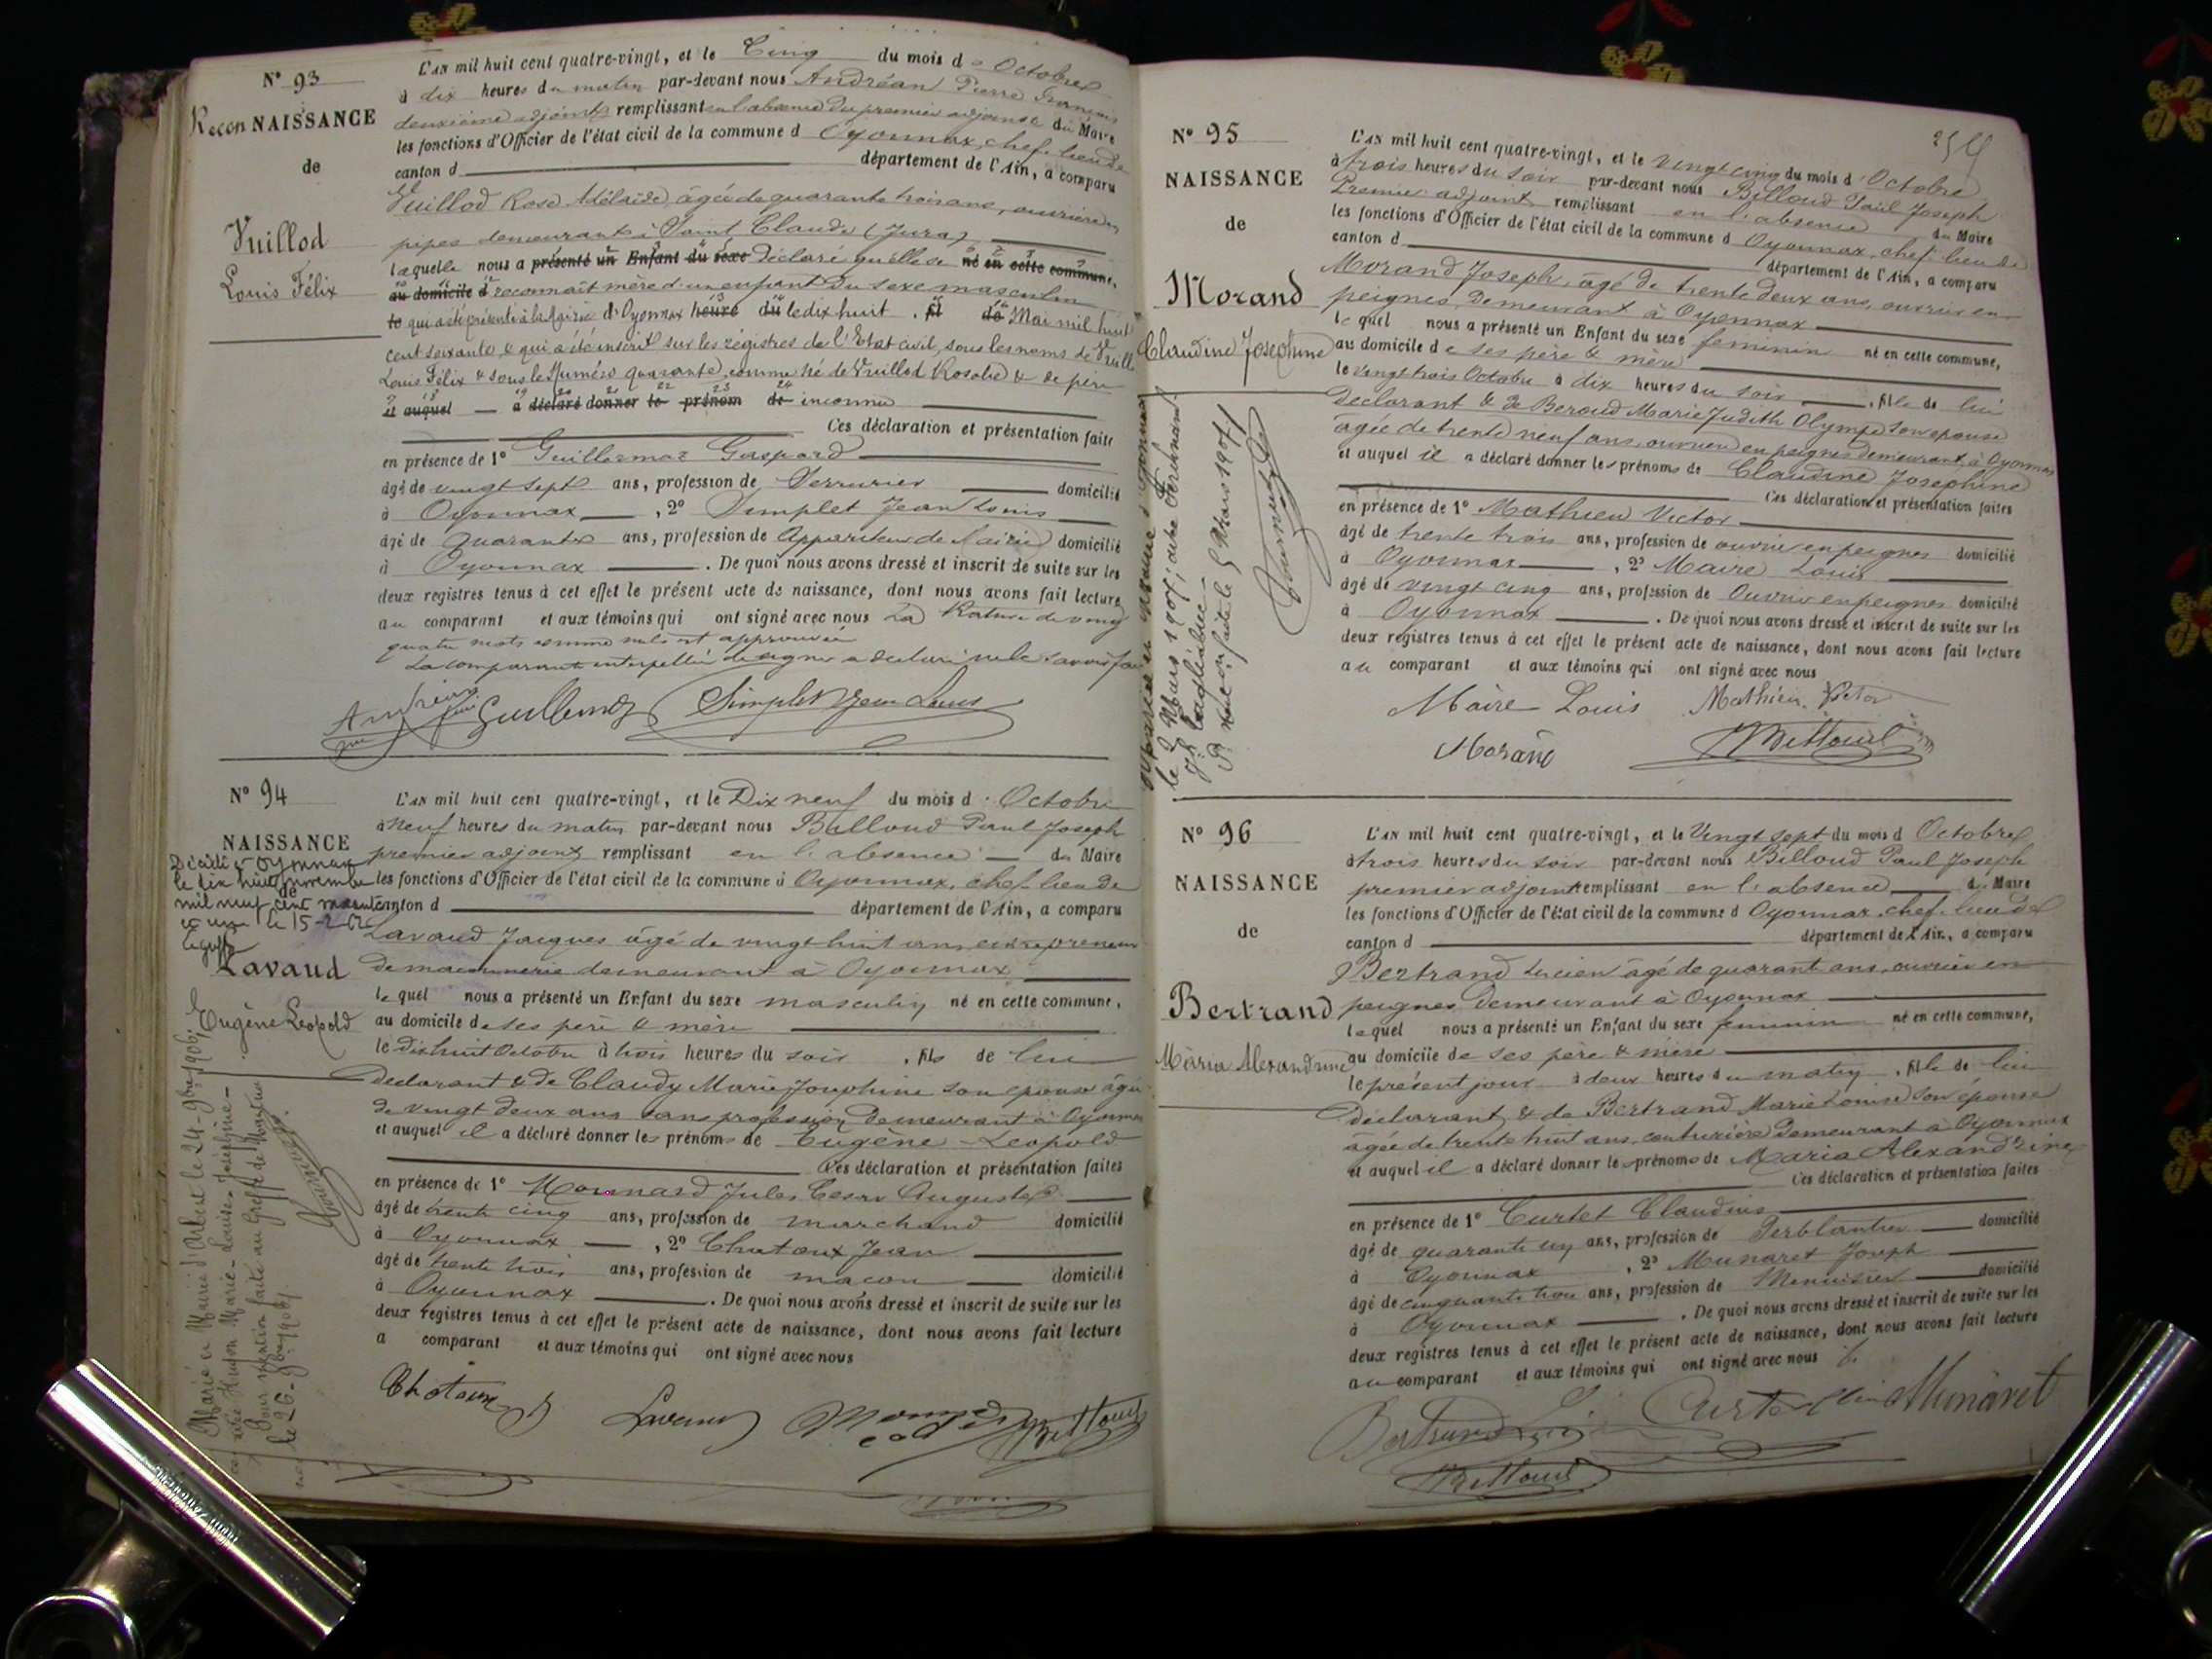 N° 93
Recon NAISSANCE
de
Vuillod
Louis Félix
L'AN mil huit cent quatre-vingt, et le Cinq du mois d'Octobre
à dix heures du matin par-devant nous Andréan Pierre François
deuxième adjoint remplissant en l'absence du premier adjoint & du Maire
les fonctions d'Officier de l'état civil de la commune d'Oyonnax, chef-lieu de
canton d département de l'Ain, a comparu
Vuillod Rose Adélaïde, âgée de quarante trois ans, ouvrière en
pipes demeurant à Saint Claude (Jura)
laquelle nous a présenté un Enfant du sexe déclaré qu'elle se né en cette commune,
au domicile d reconnaît mère d'un enfant du sexe masculin
le qui a été présenté à la Mairie d'Oyonnax heure du le dix huit . fil de Mai mil huit
cent soixante, & qui a été inscrit sur les régistres de l'Etat civil, sous les noms de Vuillod
Louis Félix & sous le Numéro quarante, comme né de Vuillod Rosalie & de père
et auquel a déclaré donner le prénom de inconnu
Ces déclaration et présentation faite
en présence de 1° Guillermoz Gaspard
âgé de vingt sept ans, profession de Serrurier domicilié
à Oyonnax , 2° Simplet Jean Louis
âgé de quarante ans, profession de Appariteur de Mairie domicilié
à Oyonnax . De quoi nous avons dressé et inscrit de suite sur les
deux registres tenus à cet effet le présent acte de naissance, dont nous avons fait lecture
au comparant et aux témoins qui ont signé avec nous La Rature de vingt
quatre mots comme nuls est approuvée
La comparante interpellée de signer a déclaré ne le savoir faire
Guillermoz Simplet Jean Louis
N° 94
NAISSANCE
de
Décédé à Oyonnax
le dix huit novembre
mil neuf cent soixante
et un le 15-2-62
Lavaud
Eugène Léopold
Marié en Mairie d'Arbent le 24-9bre 1906;
avec Hugon Marie-Louise-Joséphine-
Pour mention faite au Greffe de Nantua
le 26-9bre 1906.
L'AN mil huit cent quatre-vingt, et le Dix neuf du mois d'Octobre
à Neuf heures du matin par-devant nous Billoud Paul Joseph
premier adjoint remplissant en l'absence du Maire
les fonctions d'Officier de l'état civil de la commune d'Oyonnax, chef-lieu de
canton d département de l'Ain, a comparu
Lavaud Jacques âgé de vingt huit ans, entrepreneur
de maçonnerie demeurant à Oyonnax
lequel nous a présenté un Enfant du sexe masculin né en cette commune,
au domicile de ses père & mère
le dix huit Octobre à trois heures du soir , fils de lui
déclarant & de Claudy Marie Josephine son épouse âgée
de vingt deux ans sans profession demeurant à Oyonnax
et auquel il a déclaré donner les prénoms de Eugène-Léopold
Ces déclaration et présentation faites
en présence de 1° Monnard Jules Cesar Auguste
âgé de trente cinq ans, profession de marchand domicilié
à Oyonnax , 2° Chataux Jean
âgé de trente trois ans, profession de maçon domicilié
à Oyonnax . De quoi nous avons dressé et inscrit de suite sur les
deux registres tenus à cet effet le présent acte de naissance, dont nous avons fait lecture
a comparant et aux témoins qui ont signé avec nous
Lavaud PBilloud
254
N° 95
NAISSANCE
de
Morand
Claudine Josephine
le 2 Mars 1907, avec Ferdinand
Pr mention faite le 5 Mars 1907
L'AN mil huit cent quatre-vingt, et le Vingt cinq du mois d'Octobre
à trois heures du soir par-devant nous Billoud Paul Joseph
Premier adjoint remplissant en l'absence du Maire
les fonctions d'Officier de l'état civil de la commune d'Oyonnax, chef-lieu de
canton d département de l'Ain, a comparu
Morand Joseph, âgé de trente deux ans, ouvrier en
peignes, demeurant à Oyonnax
lequel nous a présenté un Enfant du sexe féminin né en cette commune,
au domicile de ses père & mère
le vingt trois Octobre à dix heures du soir , fille de lui
déclarant & de Beroud Marie Judith Olympe son épouse
âgée de trente neuf ans, ouvrière en peignes demeurant à Oyonnax
et auquel il a déclaré donner les prénoms de Claudine Josephine
Ces déclaration et présentation faites
en présence de 1° Mathieu Victor
âgé de trente trois ans, profession de ouvrier en peignes domicilié
à Oyonnax , 2° Maire Louis
âgé de vingt cinq ans, profession de Ouvrier en peignes domicilié
à Oyonnax . De quoi nous avons dressé et inscrit de suite sur les
deux registres tenus à cet effet le présent acte de naissance, dont nous avons fait lecture
au comparant et aux témoins qui ont signé avec nous
Maire Louis Mathieu Victor
Morand PBilloud
N° 96
NAISSANCE
de
Bertrand
Maria Alexandrine
L'AN mil huit cent quatre-vingt, et le Vingt sept du mois d'Octobre
à trois heures du soir par-devant nous Billoud Paul Joseph
premier adjoint remplissant en l'absence du Maire
les fonctions d'Officier de l'état civil de la commune d'Oyonnax, chef-lieu de
canton d département de l'Ain, a comparu
Bertrand Lucien âgé de quarante ans, ouvrier en
peignes demeurant à Oyonnax
lequel nous a présenté un Enfant du sexe féminin né en cette commune,
au domicile de ses père & mère
le présent jour à deux heures du matin , fille de lui
déclarant & de Bertrand Marie Louise son épouse
âgée de trente huit ans, couturière demeurant à Oyonnax
et auquel il a déclaré donner les prénoms de Maria Alexandrine
Ces déclaration et présentation faites
en présence de 1° Curtet Claudius
âgé de quarante un ans, profession de Ferblantier domicilié
à Oyonnax , 2° Munaret Joseph
âgé de cinquante trois ans, profession de Menuisier domicilié
à Oyonnax . De quoi nous avons dressé et inscrit de suite sur les
deux registres tenus à cet effet le présent acte de naissance, dont nous avons fait lecture
au comparant et aux témoins qui ont signé avec nous
Bertrand Munaret
PBilloud